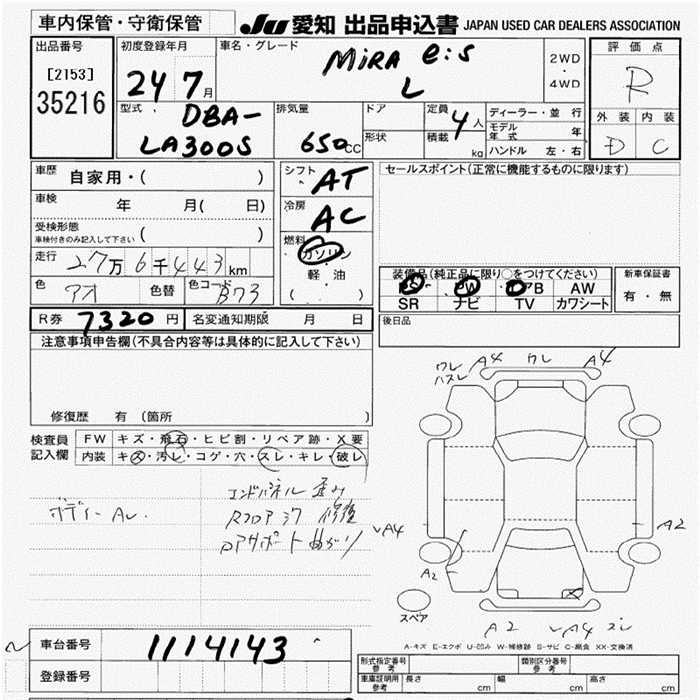 車内保管・守衛保管
JU 愛知 出品申込書 JAPAN USED CAR DEALERS ASSOCIATION
出品番号
[2153]
35216
初度登録年月
24 7月
車名・グレード
MiRA e:s
L
2WD
・
4WD
評価点
R
外装 内装
D C
型式
DBA-
LA300S
排気量
650cc
ドア
形状
定員 4人
積載 kg
ディーラー・並行
モデル年式 年
ハンドル 左・右
車歴 自家用・( )
車検 年 月( 日)
受検形態
車検付きのみ記入して下さい ( )
走行 27万6千443km
色 アオ 色替 色コード B73
シフト AT
冷房 AC
燃料 ガソリン
・
軽・油
( )
セールスポイント(正常に機能するものに限ります)
装備品(純正品に限り○をつけてください)
PS PW エアB AW
SR ナビ TV カワシート
新車保証書
有・無
R券 7320円 名変通知期限 月 日
後日品
注意事項申告欄(不具合内容等は具体的に記入して下さい)
修復歴 有(箇所
検査員
記入欄
FW キズ・飛石・ヒビ割・リペア跡・X要
内装 キズ・汚レ・コゲ・穴・スレ・キレ・破レ
ボデー AU.
エンドパネル 歪み
Rフロア 修復
曲がり
ワレ
ハズレ
A4 ワレ A4
A4
A2
A2
スペア
A2 A4 ズレ
A-キズ E-エクボ U-凹み W-補修跡 S-サビ C-腐食 XX-交換済
車台番号 1114143
登録番号
形式指定番号
参考
類別区分番号
参考
車庫証明用
参考
長さ cm 幅 cm 高さ cm